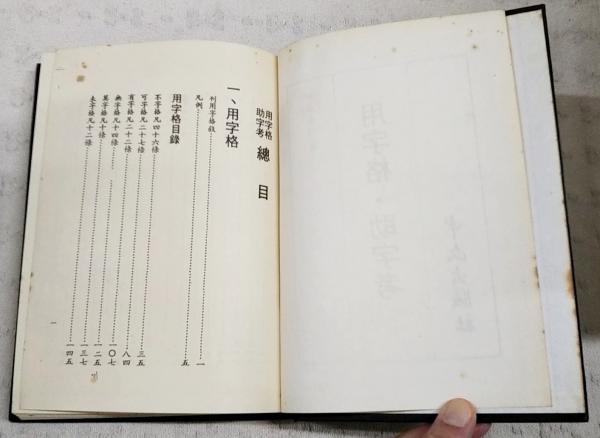 用字格
助字考 總目
一、用字格
刊用字格敍……一
凡例……五
用字格目錄
不字格凡四十六條……三五
可字格凡二十七條……八四
有字格凡二十二條……一〇七
無字格凡十四條……一二五
莫字格凡十條……一三七
未字格凡十二條……一四五
一
用字格・助字考